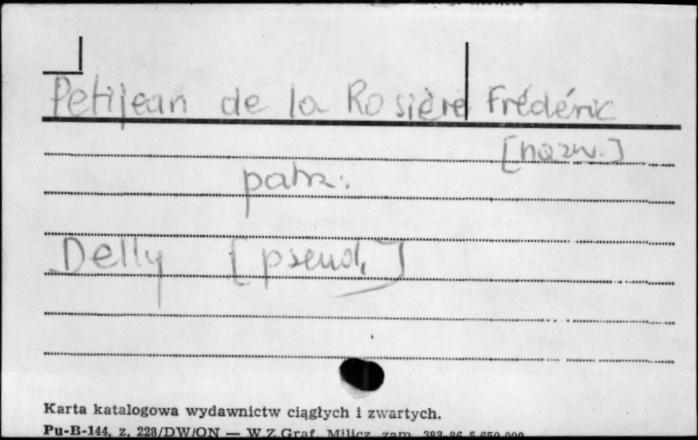 Petijean de la Rosière Frédéric
[nazw.]
patrz:
Delly [pseud.]
Karta katalogowa wydawnictw ciągłych i zwartych.
Pu-B-144, z. 228/DW/ON — W.Z.Graf. Milicz zam.